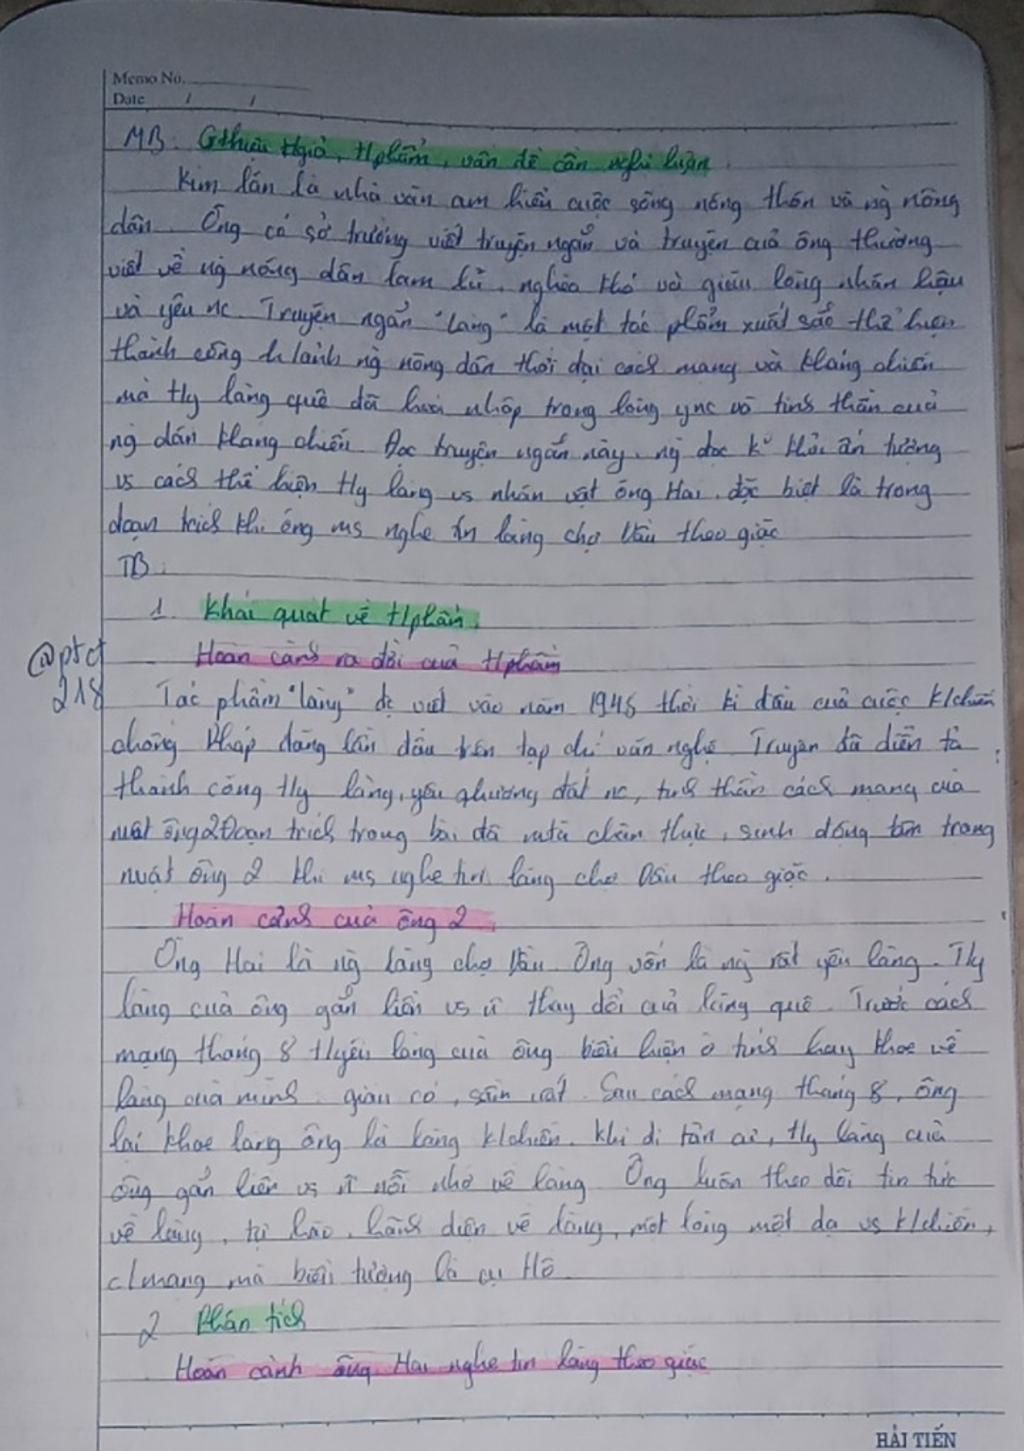 Memo No.
Date / /
MB: Gthiệu tgiả, tphẩm, vấn đề cần nghị luận.
Kim lân là nhà văn am hiểu cuộc sống nông thôn và ng nông
dân. Ông có sở trường viết truyện ngắn và truyện của ông thường
viết về ng nông dân lam lũ, nghèo khó và giàu lòng nhân hậu
và yêu nc. Truyện ngắn "làng" là một tác phẩm xuất sắc thể hiện
thành công ng nông dân thời đại cách mạng và kháng chiến
mà ty làng quê đã hoà nhập trong lòng ync và tinh thần của
ng dân kháng chiến. Đọc truyện ngắn này, ng đọc k° khỏi ấn tượng
vs cách thể hiện ty làng vs nhân vật ông Hai, đặc biệt là trong
đoạn trích khi ông ms nghe tin làng chợ Dầu theo giặc
TB:
1. Khái quát về tphẩm.
@ptct
218
Hoàn cảnh ra đời của tphẩm
Tác phẩm "làng" đc viết vào năm 1948 thời kì đầu của cuộc k/chiến
chống Pháp đăng lần đầu trên tạp chí văn nghệ. Truyện đã diễn tả
thành công ty làng, yêu đất nc, tinh thần cách mạng của
nvật ông 2. Đoạn trích trong bài đã mtả chân thực, sinh động tâm trạng
nvật ông 2 khi ms nghe tin làng chợ Dầu theo giặc.
Hoàn cảnh của ông 2.
Ông Hai là ng làng chợ Dầu. Ông vốn là ng rất yêu làng. Ty
làng của ông gắn liền vs thay đổi của làng quê. Trước cách
mạng tháng 8 tyêu làng của ông biểu hiện ở tính hay khoe về
làng của mình giàu có, Sau cách mạng tháng 8, ông
lại khoe làng ông là làng k/chiến. Khi đi tản cư, ty làng của
ông gắn liền vs nỗi nhớ về làng. Ông luôn theo dõi tin tức
về làng, tự hào, hãnh diện về làng, một lòng một dạ vs k/chiến,
c/mạng mà biểu tượng là cụ Hồ.
2 Phân tích
Hoàn cảnh ông Hai nghe tin làng theo giặc
HẢI TIẾN